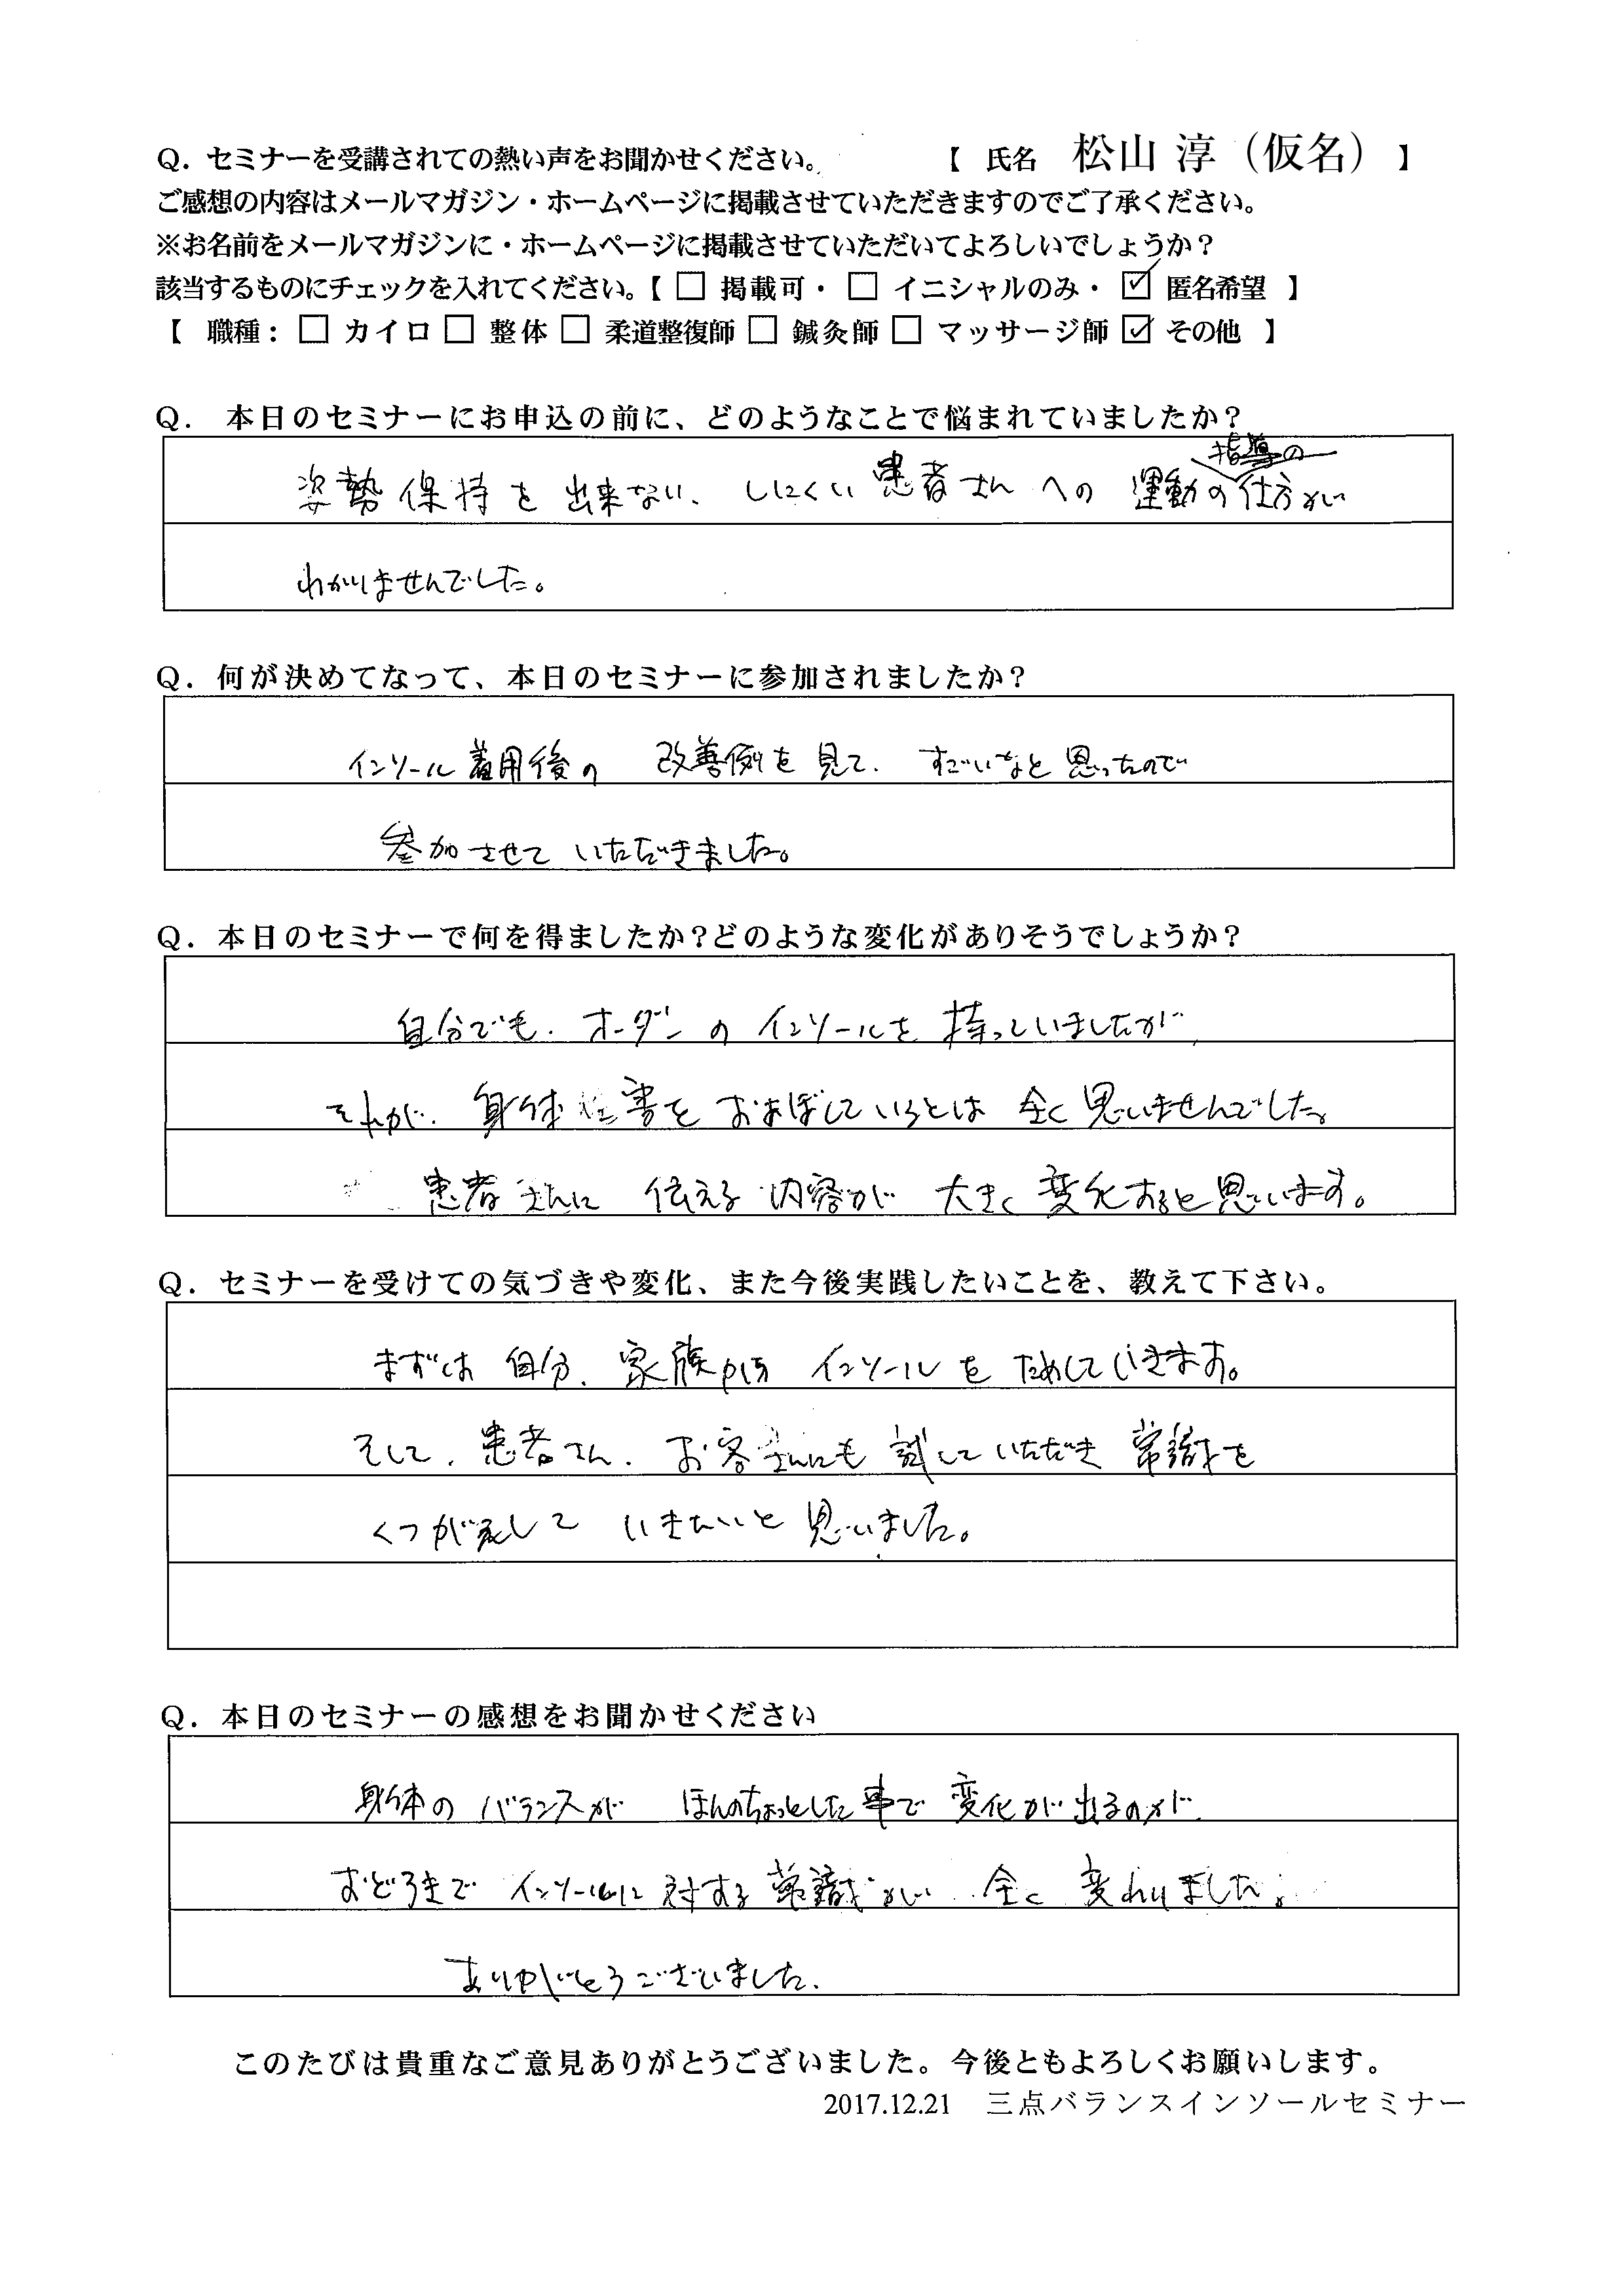 Q. セミナーを受講されての熱い声をお聞かせください。 【 氏名 松山 淳（仮名） 】
ご感想の内容はメールマガジン・ホームページに掲載させていただきますのでご了承ください。
※お名前をメールマガジンに・ホームページに掲載させていただいてよろしいでしょうか？
該当するものにチェックを入れてください。【 □ 掲載可・ □ イニシャルのみ・ ☑ 匿名希望 】
【 職種： □ カイロ □ 整体 □ 柔道整復師 □ 鍼灸師 □ マッサージ師 ☑ その他 】
Q. 本日のセミナーにお申込の前に、どのようなことで悩まれていましたか？
指導の
姿勢保持を出来ない、しにくい患者さんへの運動の仕方が
わかりませんでした。
Q. 何が決めてなって、本日のセミナーに参加されましたか？
インソール着用後の 改善例を見て、すごいなと思ったので
参加させていただきました。
Q. 本日のセミナーで何を得ましたか？どのような変化がありそうでしょうか？
自分でも、オーダンのインソールを持っていましたが、
それが、身体 害をおよぼしているとは全く思いませんでした。
患者さんに 伝える内容が 大きく変化すると思います。
Q. セミナーを受けての気づきや変化、また今後実践したいことを、教えて下さい。
まずは自分、家族から インソールをためしていきます。
そして、患者さん、お客さんにも試していただき常識を
くつがえして いきたいと思いました。
Q. 本日のセミナーの感想をお聞かせください
身体のバランスが ほんのちょっとした事で 変化が出るのが、
おどろきで インソールに対する常識が 全く 変わりました。
ありがとうございました。
このたびは貴重なご意見ありがとうございました。今後ともよろしくお願いします。
2017.12.21 三点バランスインソールセミナー